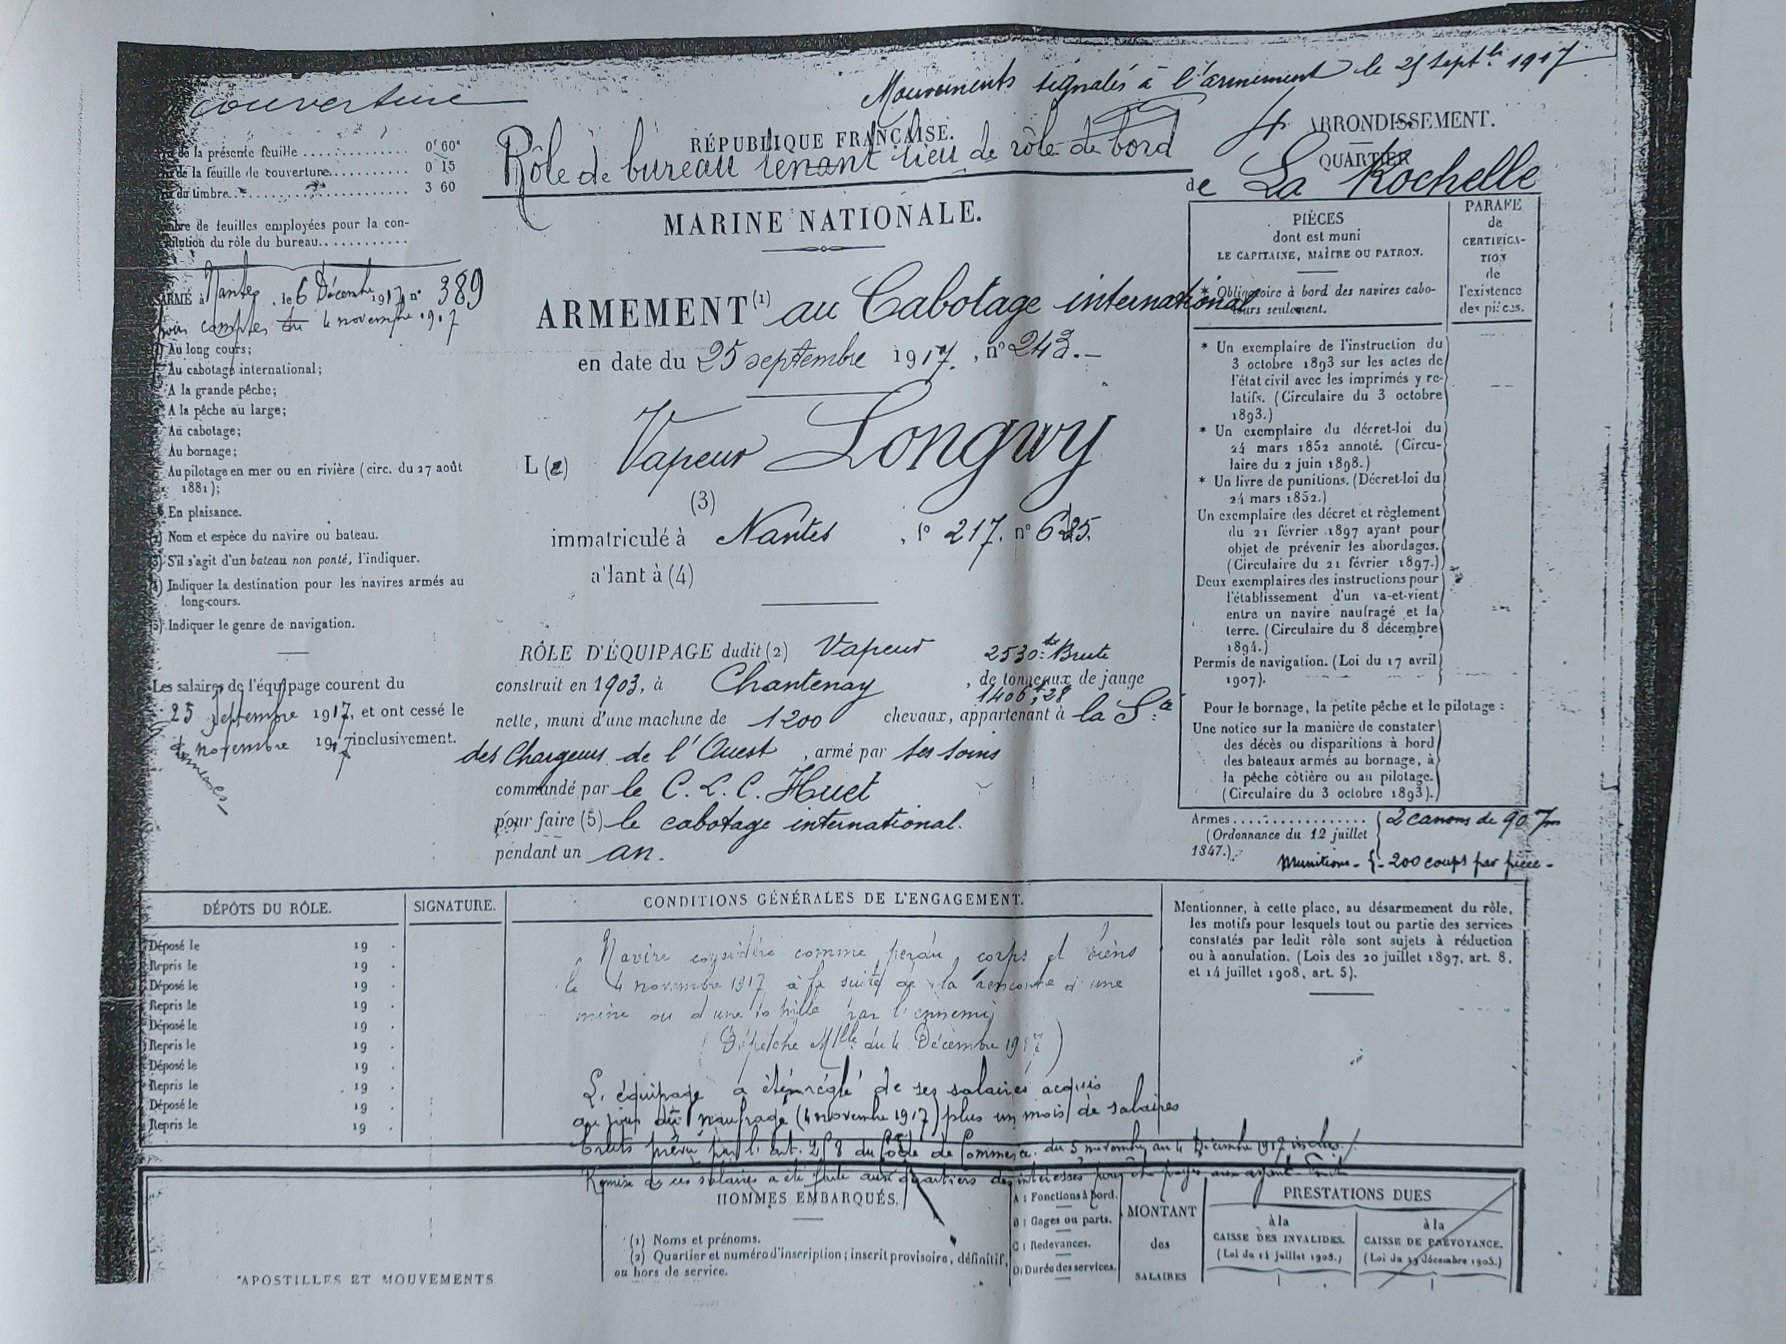 couverture
Mouvements signalés à l'armement le 25 Septbre 1917
de la présente feuille ............ 0f 60c
de la feuille de couverture.......... 0 15
du timbre............ 3 60
de feuilles employées pour la con-
du rôle du bureau............
ARMÉ à Nantes, le 6 Décembre 1917, n° 389
pour comptes du 4 novembre 1917
Au long cours;
Au cabotage international;
A la grande pêche;
A la pêche au large;
Au cabotage;
Au bornage;
Au pilotage en mer ou en rivière (circ. du 27 août
1881);
En plaisance.
(2) Nom et espèce du navire ou bateau.
(3) S'il s'agit d'un bateau non ponté, l'indiquer.
(4) Indiquer la destination pour les navires armés au
long-cours.
(5) Indiquer le genre de navigation.
Les salaires de l'équipage courent du
25 septembre 1917, et ont cessé le
4 novembre 1917 inclusivement.
RÉPUBLIQUE FRANÇAISE.
Rôle de bureau tenant lieu de rôle de bord
MARINE NATIONALE.
ARMEMENT (1) au Cabotage international
en date du 25 septembre 1917, n° 243.-
L (2) Vapeur Longwy
(3)
immatriculé à Nantes, f° 217. n° 685.
allant à (4)
RÔLE D'ÉQUIPAGE dudit (2) Vapeur 2530 tx Brute
construit en 1903, à Chantenay, de tonneaux de jauge
1406 tx 28
nette, muni d'une machine de 1200 chevaux, appartenant à la Sté
des Chargeurs de l'Ouest, armé par ses soins
commandé par le C. L. C. Huet
pour faire (5) le cabotage international.
pendant un an.
4 ARRONDISSEMENT.
QUARTIER
de La Rochelle
PIÈCES
dont est muni
LE CAPITAINE, MAÎTRE OU PATRON.
* Obligatoire à bord des navires cabo-
teurs seulement.
PARAFE
de
CERTIFICA-
TION
de
l'existence
des pièces.
* Un exemplaire de l'instruction du
3 octobre 1893 sur les actes de
l'état civil avec les imprimés y re-
latifs. (Circulaire du 3 octobre
1893.)
* Un exemplaire du décret-loi du
24 mars 1852 annoté. (Circu-
laire du 2 juin 1898.)
* Un livre de punitions. (Décret-loi du
24 mars 1852.)
Un exemplaire des décret et règlement
du 21 février 1897 ayant pour
objet de prévenir les abordages.
(Circulaire du 21 février 1897.)
Deux exemplaires des instructions pour
l'établissement d'un va-et-vient
entre un navire naufragé et la
terre. (Circulaire du 8 décembre
1894.)
Permis de navigation. (Loi du 17 avril
1907).
Pour le bornage, la petite pêche et le pilotage :
Une notice sur la manière de constater
des décès ou disparitions à bord
des bateaux armés au bornage, à
la pêche côtière ou au pilotage.
(Circulaire du 3 octobre 1893).
Armes................ 2 canons de 90 m/m
(Ordonnance du 12 juillet
1847.)
Munitions - 200 coups par pièce -
DÉPÔTS DU RÔLE.
SIGNATURE.
CONDITIONS GÉNÉRALES DE L'ENGAGEMENT.
Déposé le 19 .
Repris le 19 .
Déposé le 19 .
Repris le 19 .
Déposé le 19 .
Repris le 19 .
Déposé le 19 .
Repris le 19 .
Déposé le 19 .
Repris le 19 .
Navire considéré comme perdu, corps et biens
le 4 novembre 1917 à la suite de la rencontre d'une
mine ou d'une torpille par l'ennemi
(Dépêche Mlle du 4 Décembre 1917)
L'équipage a été réglé de ses salaires acquis
au jour du naufrage (4 novembre 1917) plus un mois de salaires
bruts prévu par l'art. 258 du Code de Commerce. du 5 novembre au 4 Décembre 1917 inclus./
Remise de ces salaires a été faite aux quartiers des intéressés pour être payés aux ayants droit
Mentionner, à cette place, au désarmement du rôle,
les motifs pour lesquels tout ou partie des services
constatés par ledit rôle sont sujets à réduction
ou à annulation. (Lois des 20 juillet 1897, art. 8,
et 14 juillet 1908, art. 5).
APOSTILLES ET MOUVEMENTS
HOMMES EMBARQUÉS.
(1) Noms et prénoms.
(2) Quartier et numéro d'inscription; inscrit provisoire, définitif,
ou hors de service.
A : Fonctions à bord.
B : Gages ou parts.
C : Redevances.
D : Durée des services.
MONTANT
des
SALAIRES
PRESTATIONS DUES
à la
CAISSE DES INVALIDES.
(Loi du 14 juillet 1908.)
à la
CAISSE DE PRÉVOYANCE.
(Loi du 29 décembre 1905.)